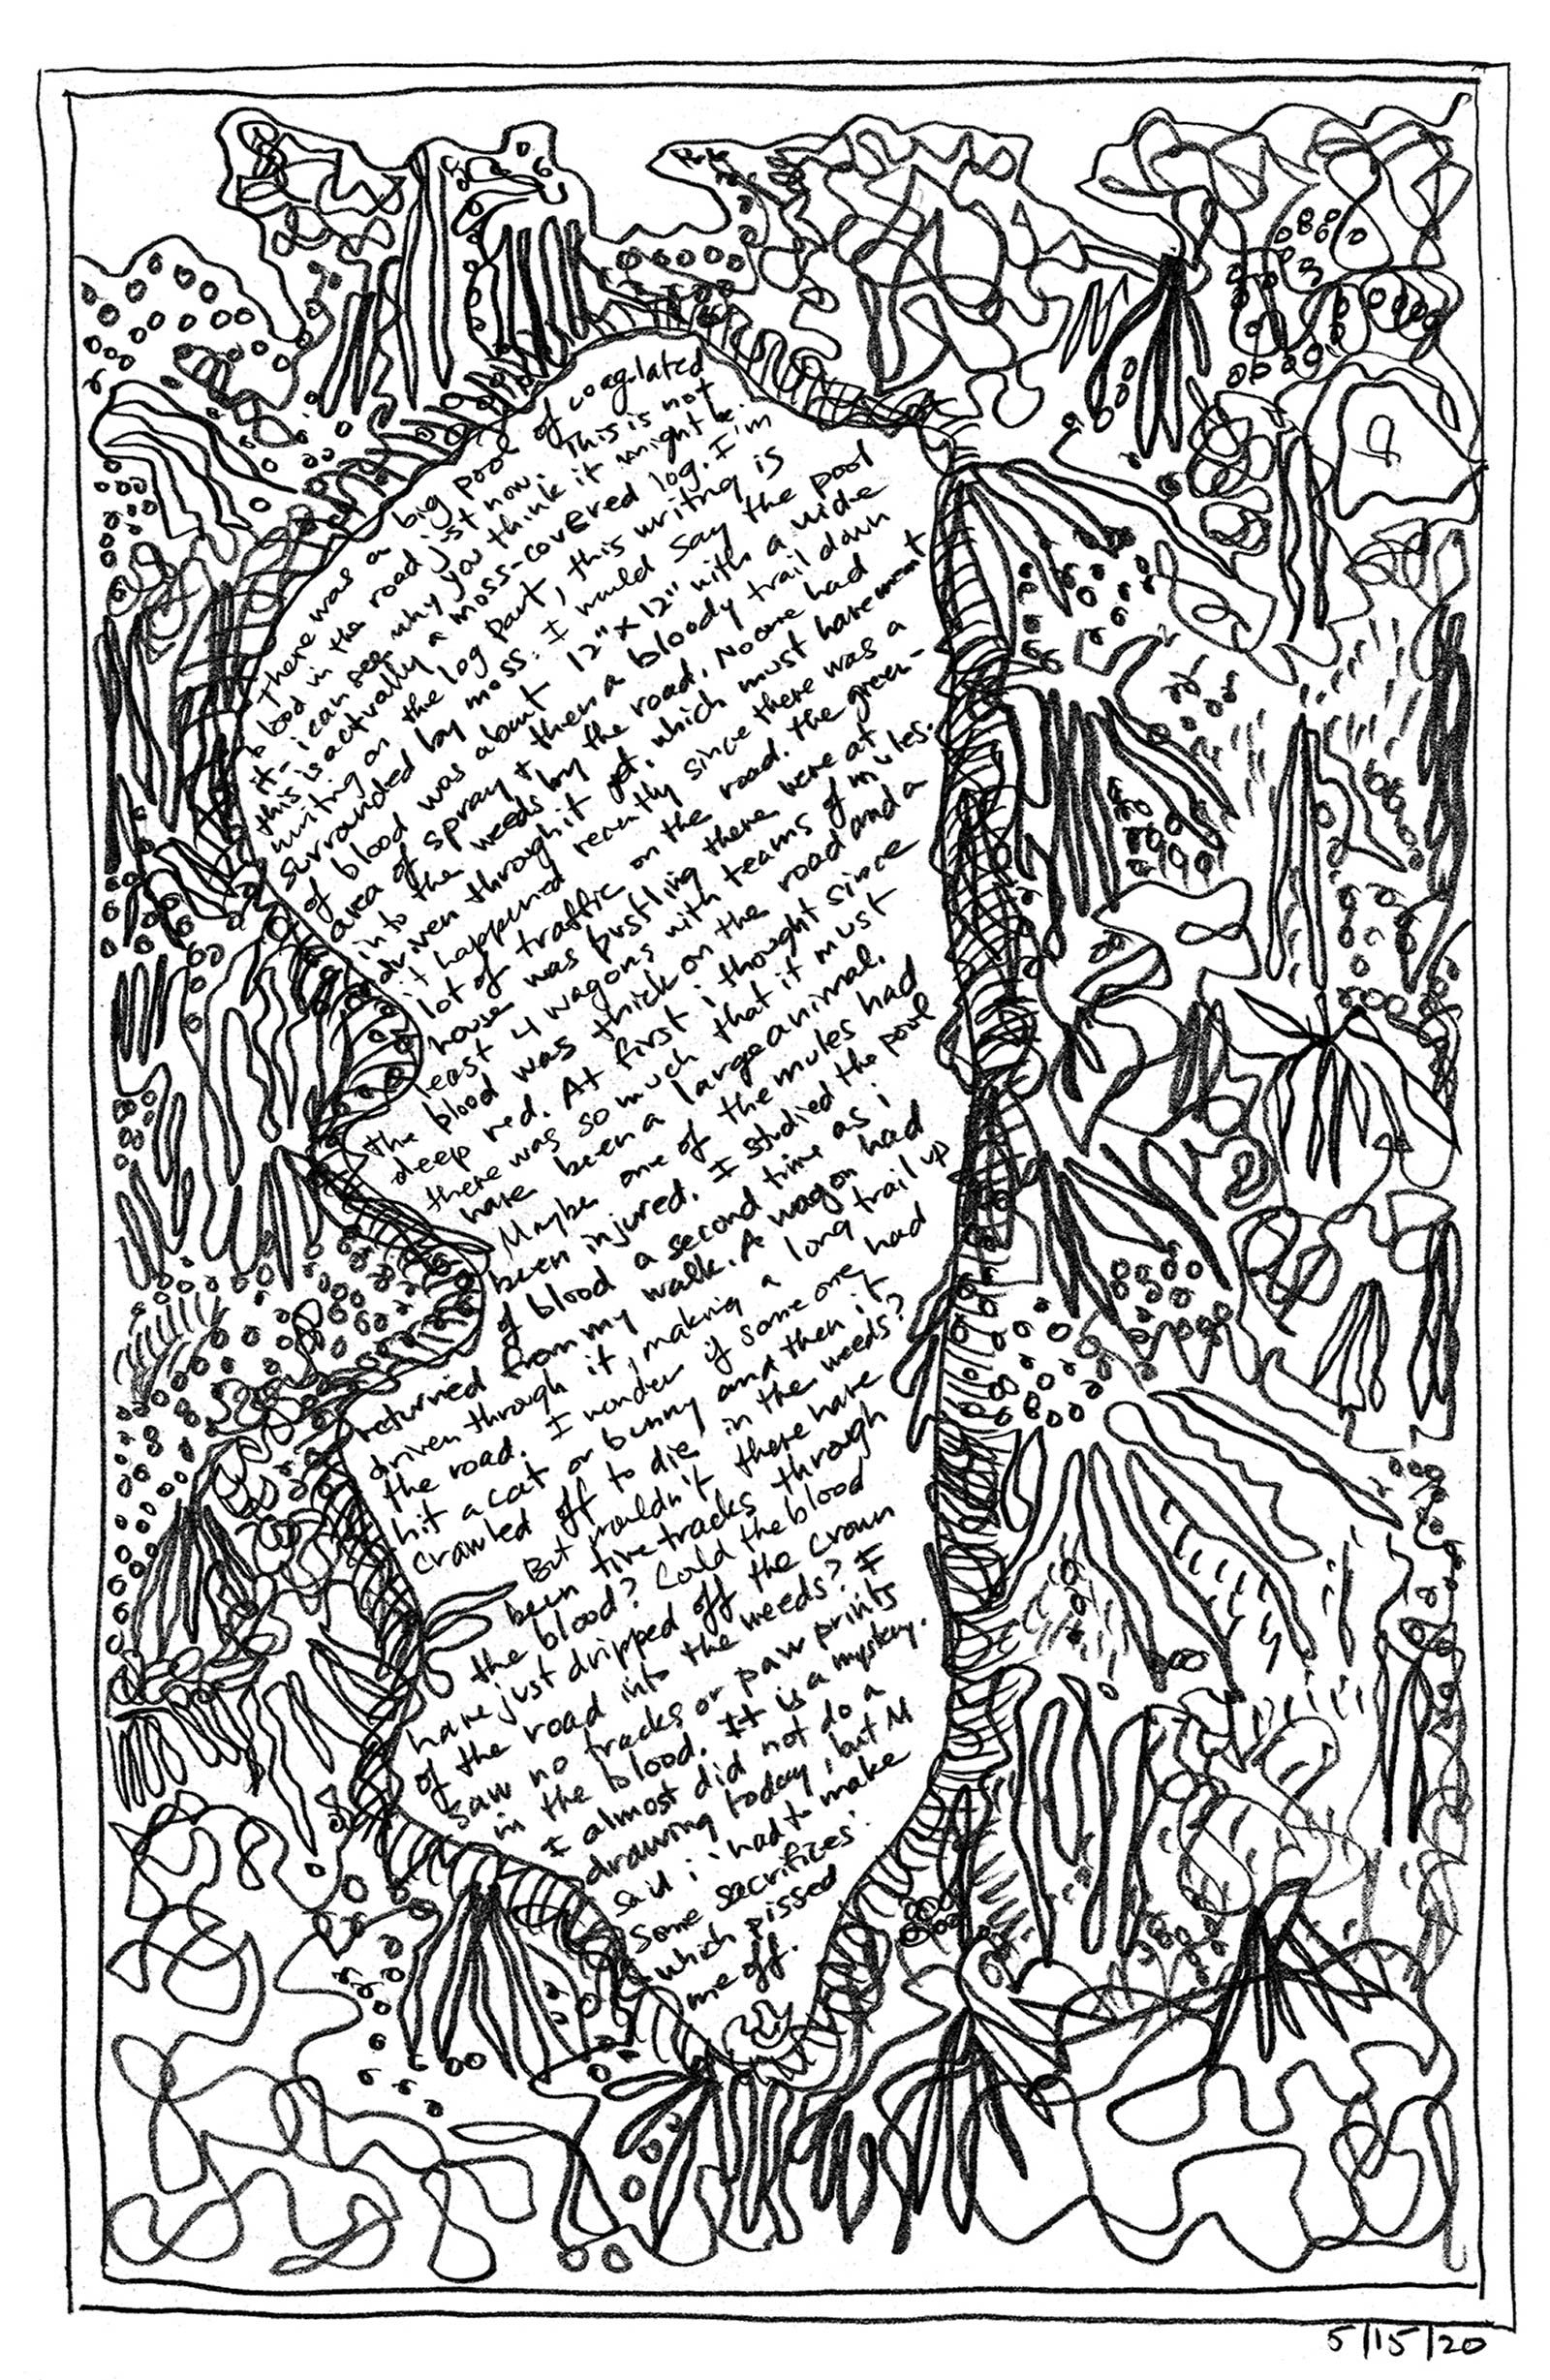 There was a big pool of coagulated
blood in the road just now. This is not
it - i can see why you think it might be.
this is actually a moss-covered log. I'm
writing on the log part, this writing is
surrounded by moss. I would say the pool
of blood was about 12" x 12" with a wide
area of spray & then a bloody trail down
into the weeds by the road. No one had
driven through it yet, which must have meant
it happened recently since there was a
lot of traffic on the road. The green-
house was bustling there were at
least 4 wagons with teams of mules.
the blood was thick on the road and a
deep red. At first i thought since
there was so much that it must
have been a large animal.
Maybe one of the mules had
been injured. I studied the pool
of blood a second time as i
returned from my walk. A wagon had
driven through it, making a long trail up
the road. I wonder if some one had
hit a cat or bunny and then it
crawled off to die in the weeds?
But wouldn't there have
been tire tracks through
the blood? Could the blood
have just dripped off the crown
of the road into the weeds? I
saw no tracks or paw prints
in the blood. It is a mystery.
I almost did not do a
drawing today, but M
said i 'had to make
some sacrifices'
which pissed
me off.
5/15/20